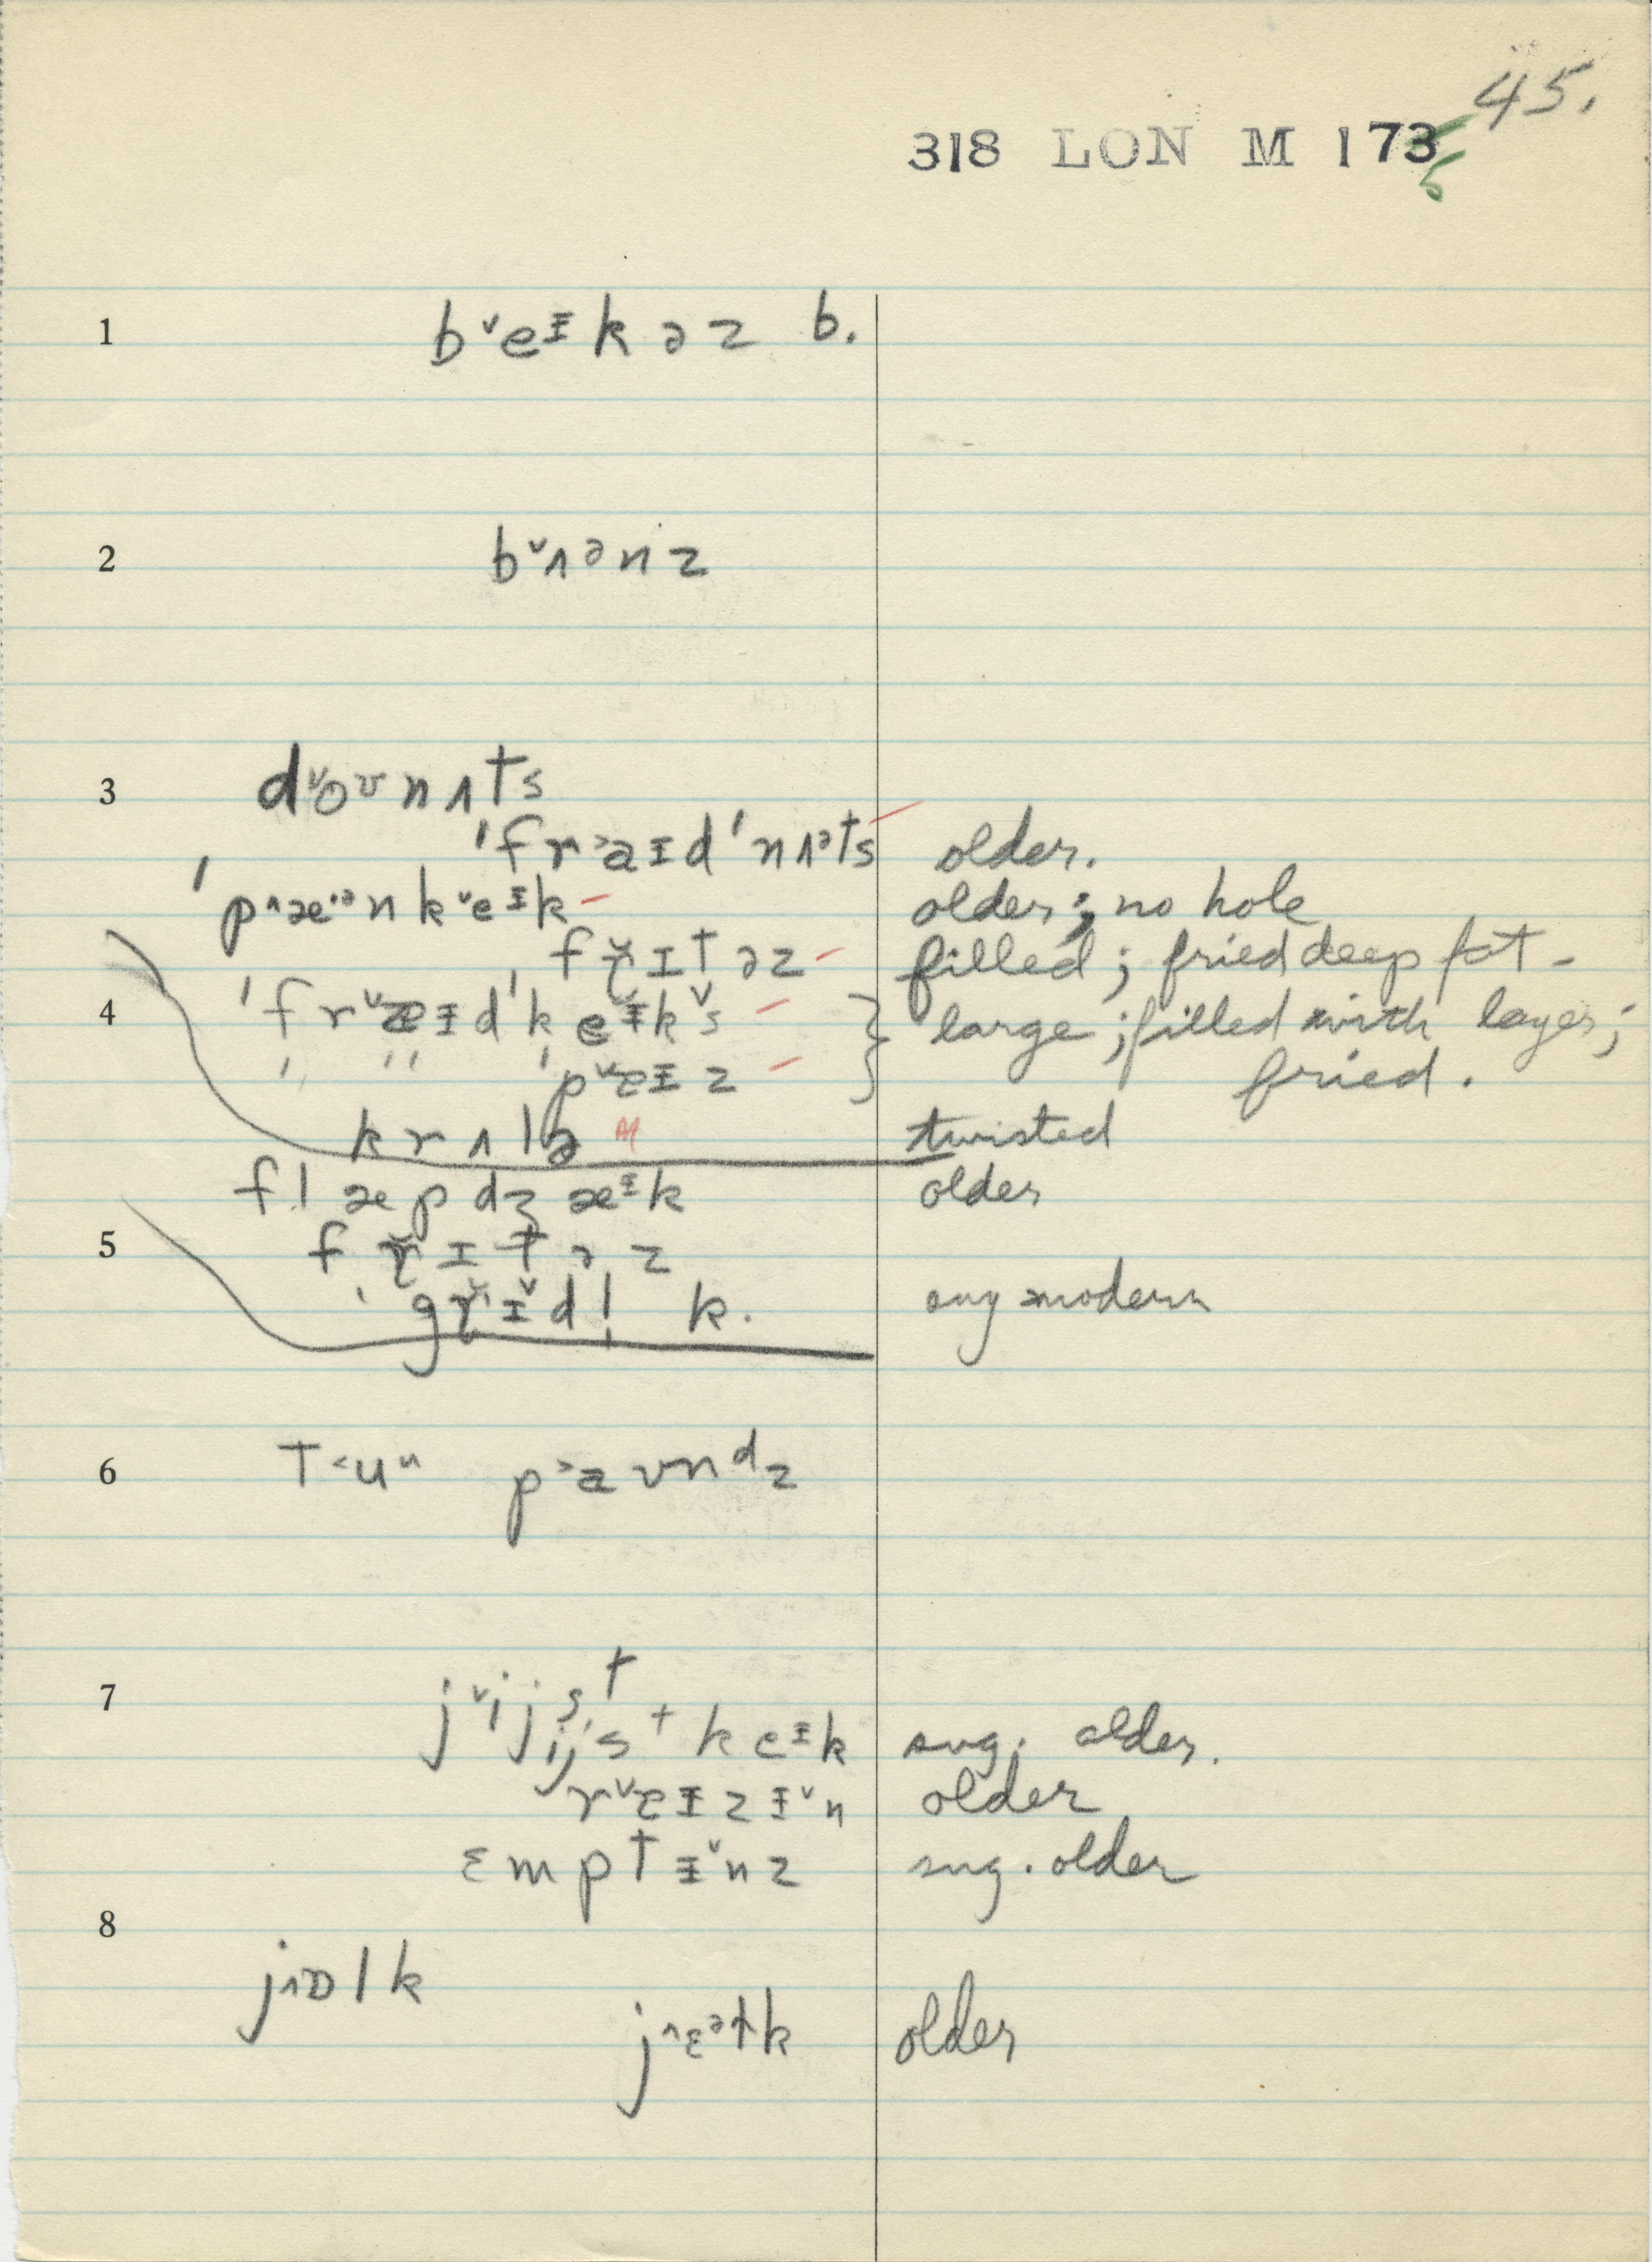 45.
318 LON M 173 5
1 bˇeᵻk ə z b.
2 bˇʌᵊnz
3 dˇoʊnʌts
ˈfr˃aɪdˈnʌᵊts older.
ˈp^æ·ᵊnkˇeᵻk older; no hole
fr̆ɪtəz filled; fried deep fat -
4 ˈfrˇæᵻdˈkeᵻkˇs large; filled with layer;
ˈ " ˈpˇɛᵻz fried.
krʌlə twisted
fl̩æpdʒæᵻk older
5 frɪtəz
ˈgrᵻdl̩ k. any modern
6 t˂uᵘ p˃aʊnᵈz
7 jˇijst
ijst keᵻk sug. older.
rˇeᵻzᵻˇn older
ɛmptᵻˇnz sug. older
8 j^ɒlk
j^ɛᵊɫk older